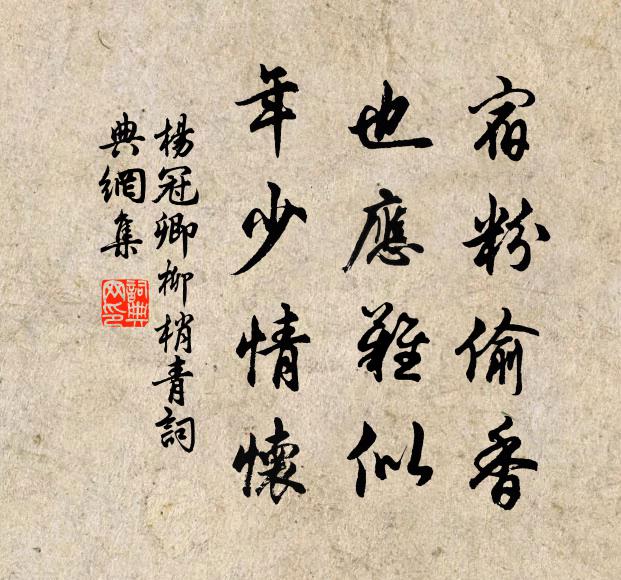 宿粉偷香
也應難似
年少情懷
楊冠卿柳梢青詞
典網集
詞典
网印